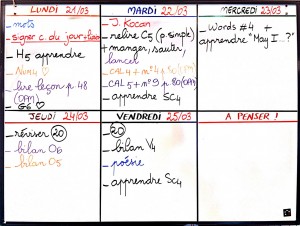 LUNDI 21/03
_ mots
_ signer c du jour
_ H5 apprendre
_ Num4
_ lire leçon p 48
(OAM)
_ G6 ♡
MARDI 22/03
_ J. Rocan
_ relire C5 (p. simple)
+ manger, sauter,
lancer
_ CAL 4 + n°4 p 50
_ CAL 5 + n°9 p 80 (OAM)
_ apprendre SC4
MERCREDI 23/03
_ Words #4 +
apprendre "May I ...?"
JEUDI 24/03
_ réviser 20
_ bilan O6
_ bilan O5
VENDREDI 25/03
_ 20
_ bilan V4
_ poésie
_ apprendre SC4
A PENSER !